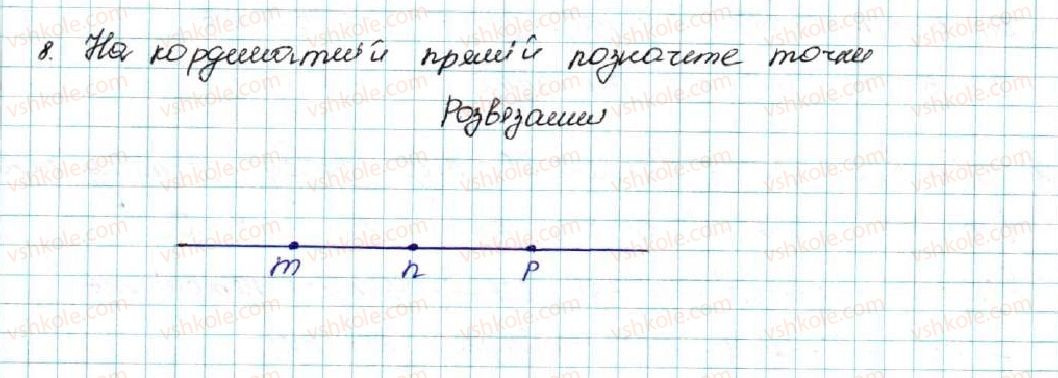 8. На кординатній прямій позначте точки
Розвязання
m n p
vshkole.com